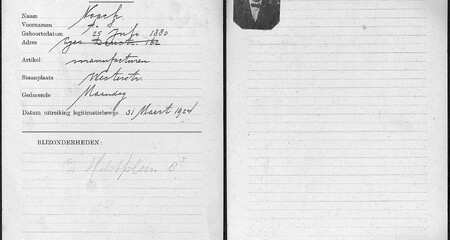 Naam Noach
Voornamen A.
Geboortedatum 25 Juli 1880
Adres
Artikel manufacturen
Staanplaats Westerstr.
Gedurende Maandag
Datum uitreiking legitimatiebewijs 31 Maart 1924
BIJZONDERHEDEN: